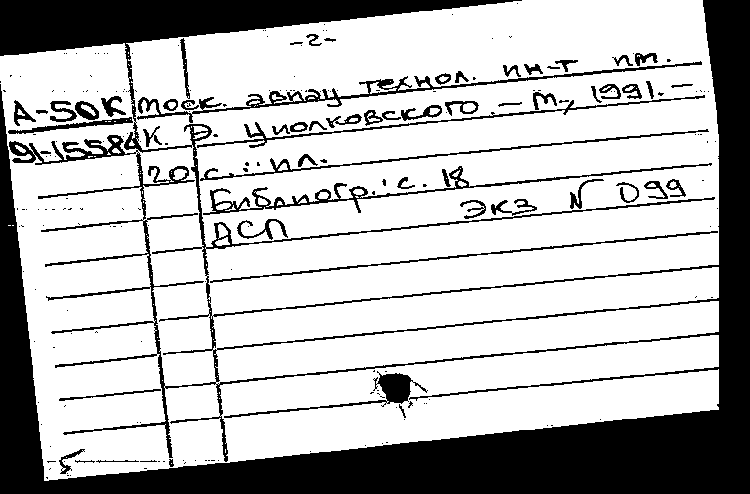 -2-
А-50К Моск. авиац технол. ин-т им.
91-15584 К. Э. Циолковского. - М., 1991. -
20 с.: ил.
Библиогр.: с. 18
ДСП ЭКЗ N 099
5